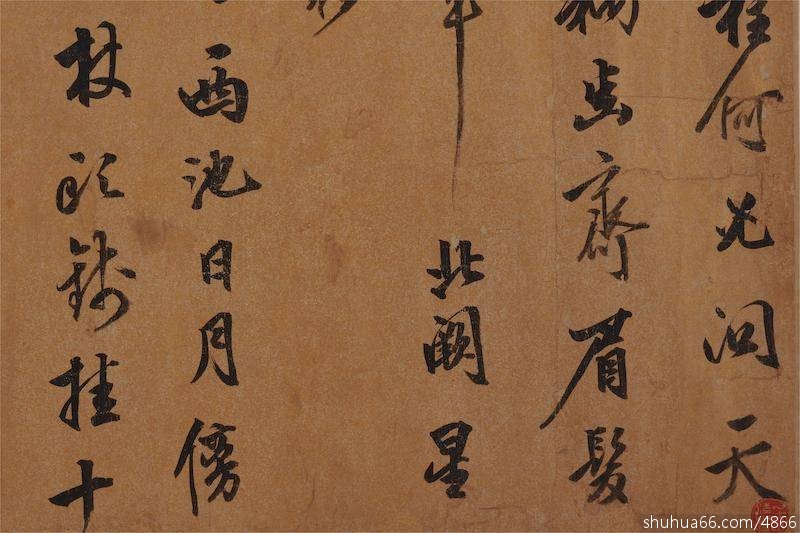 何必問天
齒齊眉髮
年北闕星
西池日月傍
杖頭錢挂十
shuhua66.com/4866